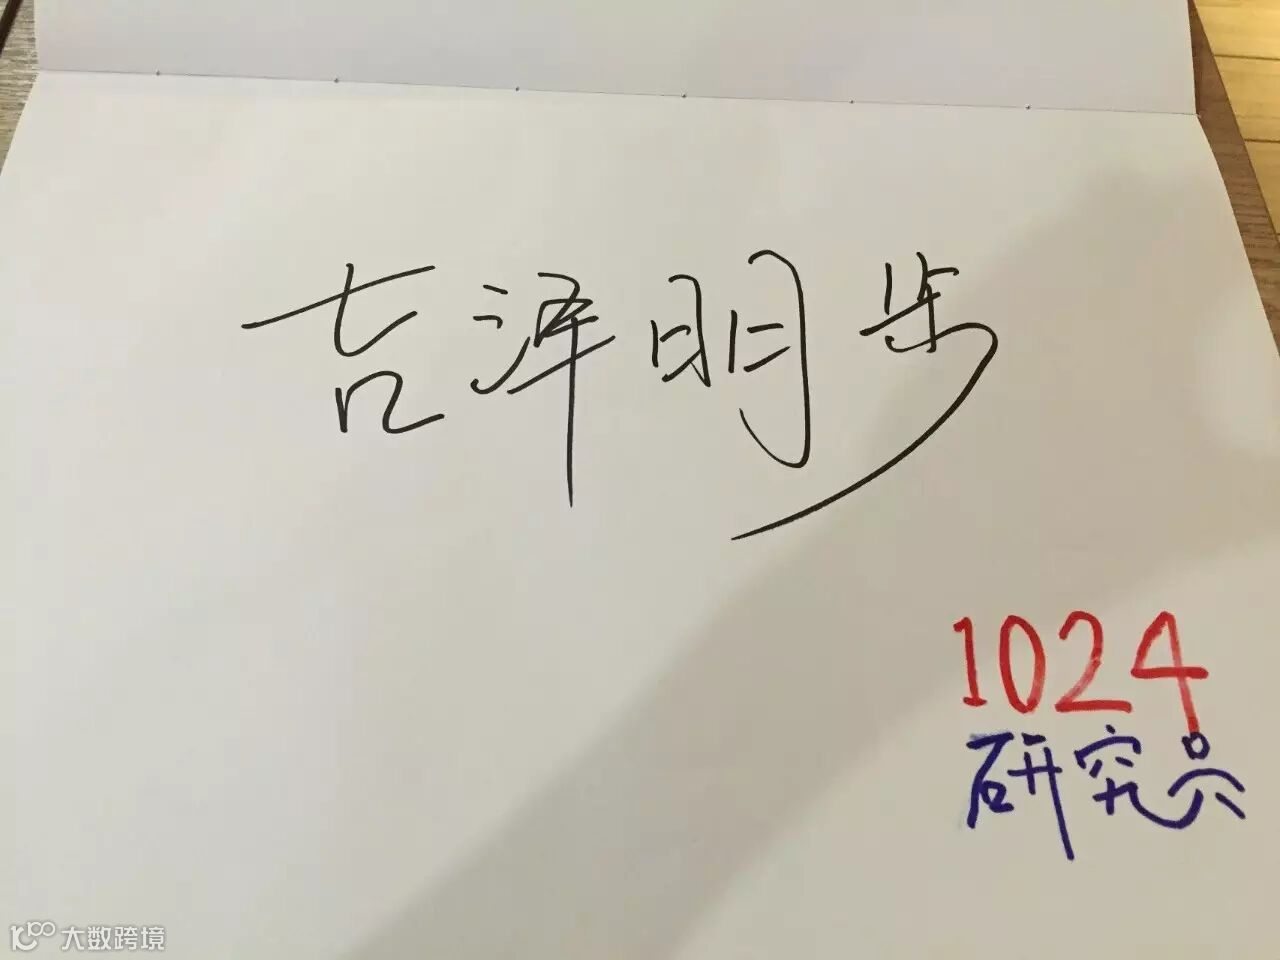 吉泽明步
1024
研究员
大数跨境